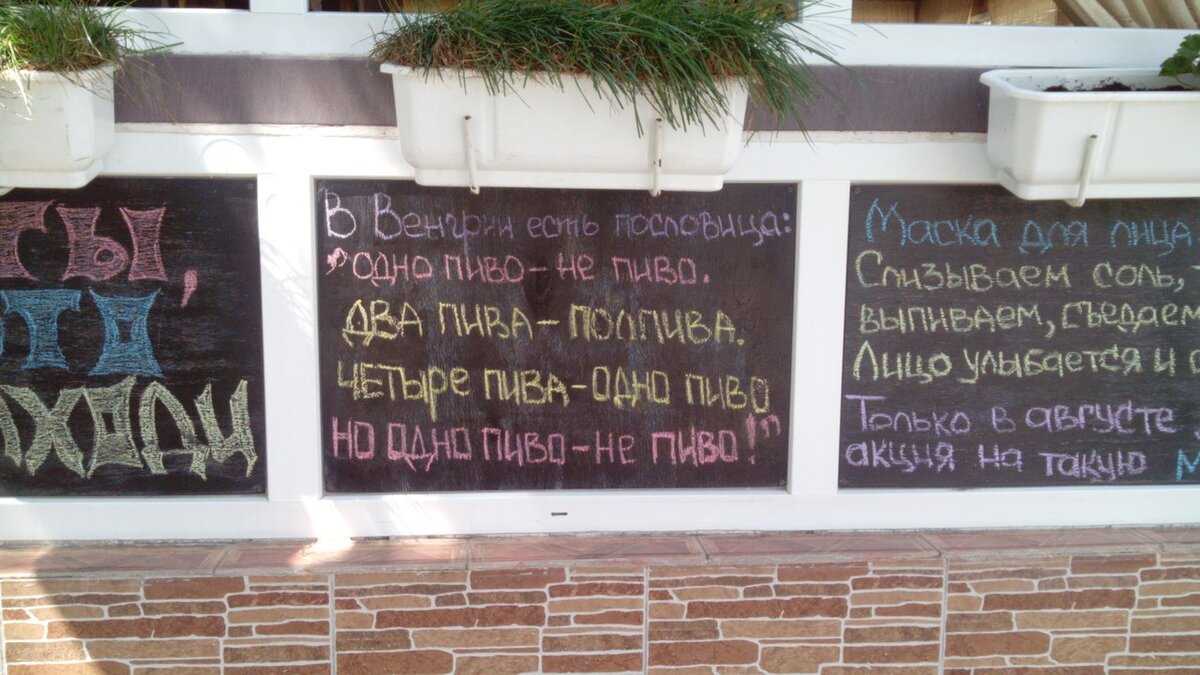 В Венгрии есть пословица:
"одно пиво - не пиво.
Два пива - полпива.
Четыре пива - одно пиво
Но одно пиво - не пиво!"
Маска для лица
Слизываем соль,
выпиваем, съедаем
Лицо улыбается и
Только в августе
акция на такую